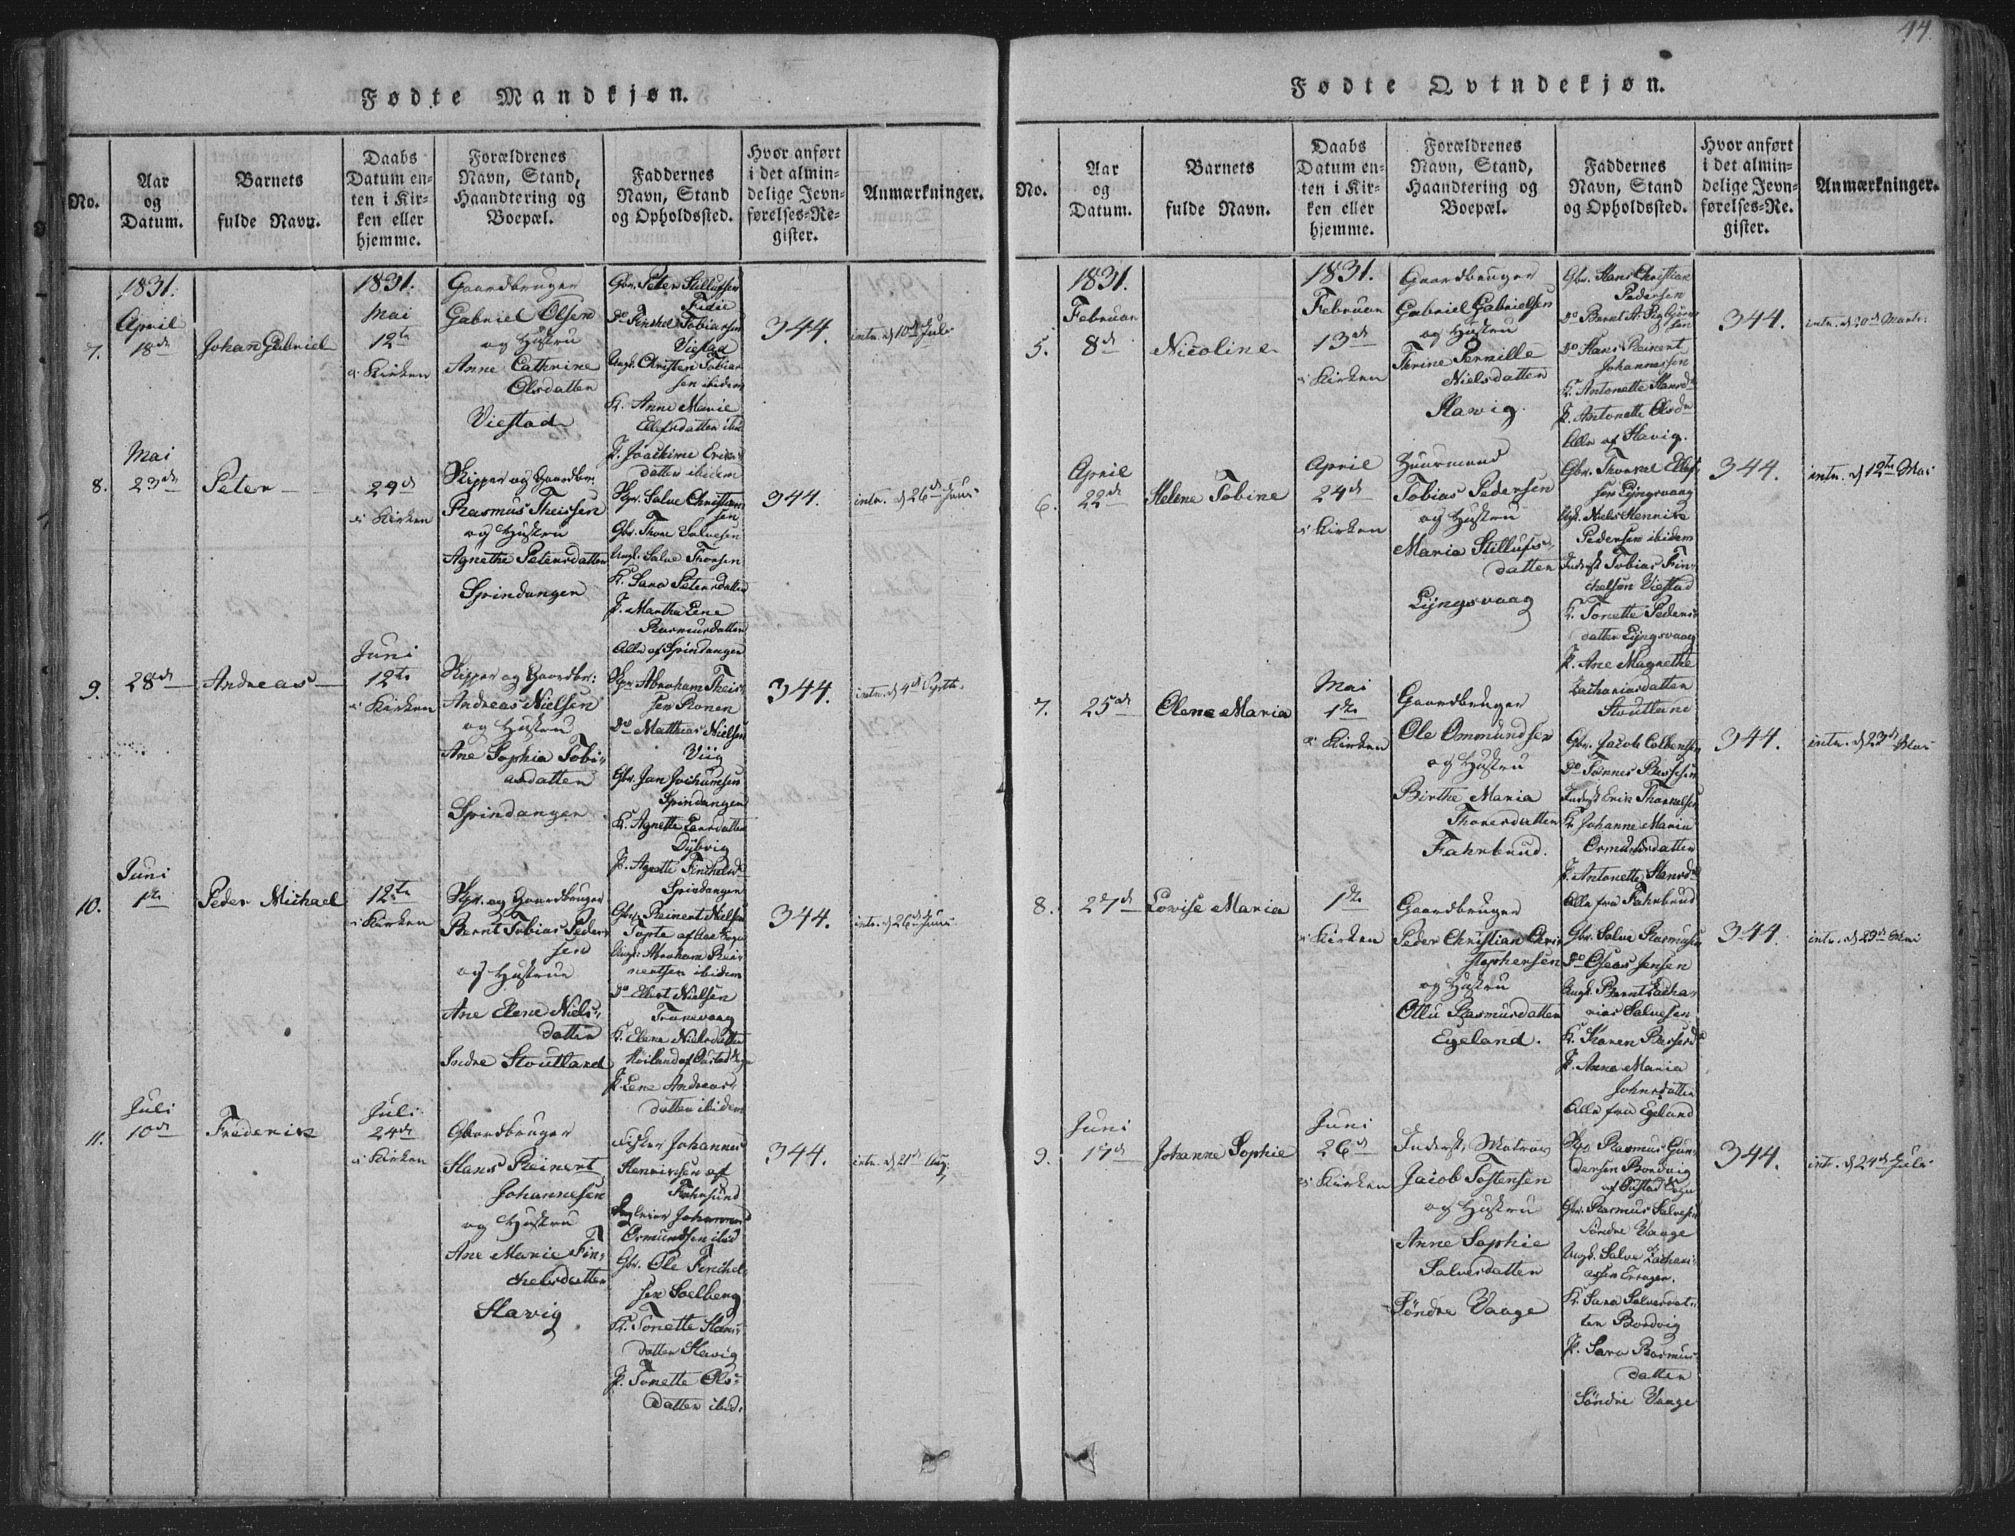 44.
Fødte Mandkjøn.
No.
Aar
og
Datum.
Barnets
fulde Navn.
Daabs
Datum en-
ten i Kir-
ken eller
hjemme.
Forældrenes
Navn, Stand,
Haandtering og
Boepæl.
Faddernes
Navn, Stand
og Opholdssted.
Hvor anført
i det almin-
delige Jevn-
førelses-Re-
gister.
Anmærkninger.
1831.
April
7. 18de
Johan Gabriel
1831.
Mai
12te
i Kirken
Gaardbruger
Gabriel Olsen
og Hustru
Anne Cathrine
Olsdatter
Viestad
Gbr. Peter Stillufsen
Do Finkel Tobiassen
Viestad
Ungk. Christen Tobias-
sen ibidem
K. Anne Marie
Ellefsdatter ibid
P. Joachime Erics-
datter ibidem
344.
intr. d. 10de Juli
Mai
8. 23de
Peter
29de
i Kirken
Skipper og Gaardbr.
Rasmus Theissen
og Hustru
Agnethe Petersdatter
Spindangen
Skpr. Salve Christen-
sen
Gbr. Thore Salvesen
Ungk. Salve Thorsen
K. Sara Petersdatter
P. Martha Lene
Rasmusdatter
Alle af Spindangen
344.
intr. d. 26de Juni
9. 28de
Andreas
Juni
12te
i Kirken
Skipper og Gaardbr.
Andreas Nielsen
og Hustru
Ane Sophia Tobi-
asdatter
Spindangen
Skpr. Abraham Theis-
sen
Do Matthias Nielsen
Viig
Gbr. Jan Jochumsen
Spindangen
K. Agnette Larsdatter
Dybvig
P. Agnette Finchelsd
Spindangen
344.
intr. d. 4de Septbr.
Juni
10. 1ste
Peder Michael
12te
i Kirken
Skpr. og Gaardbruger
Bernt Tobias Peder-
sen
og Hustrue
Ane Elene Niels-
datter
Indre Stoutland
Gbr. Reinert Nielsen
Ungk. Abraham Rei-
nertsen ibidem
Do Ellert Nielsen
Tranevaag
K. Elene Nielsdatter
P. Lene Andreas-
datter ibidem
344.
intr. d. 26de Juni
Juli
11. 10de
Frederik
Juli
24de
i Kirken
Gaardbruger
Hans Reinert
Johannesen
og Hustru
Ane Marie Fin-
chelsdatter
Havig
Johannes
Henricksen af
Farsund
Ormundsen ibid
Gbr. Ole Finchel-
sen Soelberg
K. Tonette Hans-
datter Havig
P. Tonette Ols-
datter ibid.
344.
intr. d. 21de Aug.
Fødte Qvindekjøn.
No.
Aar
og
Datum.
Barnets
fulde Navn.
Daabs
Datum en-
ten i Kir-
ken eller
hjemme.
Forældrenes
Navn, Stand,
Haandtering og
Boepæl.
Faddernes
Navn, Stand
og Opholdssted.
Hvor anført
i det almin-
delige Jevn-
førelses-Re-
gister.
Anmærkninger.
1831.
Februar
5. 8de
Nicoline
1831.
Februar
13de
i Kirken
Gaardbruger
Gabriel Gabrielsen
og Hustru
Thrine Pernille
Nielsdatter
Havig.
Gbr. Hans Christian
Pedersen
Do Hans Reinert
Johannessen
K. Antonette Hansd
P. Antonette Olsdr
Alle af Havig.
344.
intr. d. 20de Marts
April
6. 22de
Helene Tobine
April
24de
i Kirken
Huusmand
Tobias Pedersen
og Hustru
Maria Stillufs-
datter
Lyngsvaag
Gbr. Thorkel Ellef-
sen Lyngsvaag
Ungk. Niels Henrik
Pedersen ibidem
Inderst Tobias Fin-
chelsen Viestad
K. Tonette Peders-
datter Lyngsvaag
P. Ane Magrethe
Zachariasdatter
Stoutland
344.
intr. d. 12te Mai
7. 25de
Olene Maria
Mai
1ste
i Kirken
Gaardbruger
Ole Ommundsen
og Hustru
Birthe Maria
Thoresdatter
Fahrbrud.
Gbr. Jacob Colbensen
Do Tønnes Bessesen
Inderst Erik Thorkelsen
K. Johanne Maria
Ormundsdatter
P. Antonette Hansd
Alle fra Fahrbrud
344.
intr. d. 23de Mai
8. 27de
Lovise Maria
1ste
i Kirken
Gaardbruger
Peder Christian Chri-
stophersen
og Hustru
Ollu Rasmusdatter
Egeland.
Gbr. Salve Rasmusen
Do Oseas Jensen
Ungk. Bernt Zacha-
rias Salvesen
K. Karen Bessesd
P. Anne Maria
Johnsdatter
Alle fra Egeland
344.
intr. d. 29de Mai
Juni
9. 17de
Johanne Sophie
Juni
26de
i Kirken
Inderst, Matros
Jacob Tostensen
og Hustru
Anne Sophie
Salvesdatter
Søndre Vaage
Skpr. Rasmus Gun-
dersen Bordvig
Gbr. Rasmus Salvesen
Søndre Vaage
Ungk. Salve Zachari-
assen
K. Sara Salvesdat-
ter Bordvig
P. Sara Rasmus-
datter
Søndre Vaage
344.
intr. d. 24de Juli